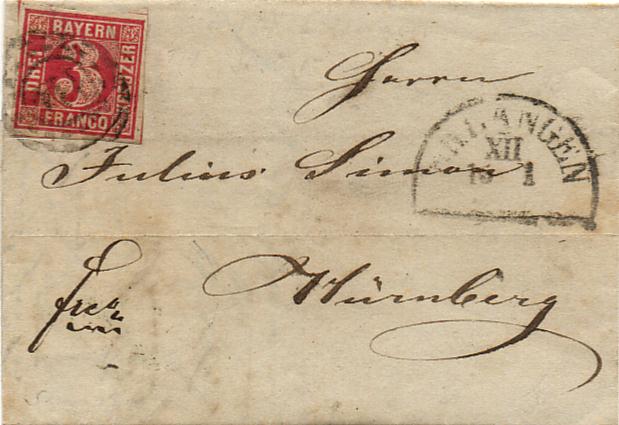 BAYERN
DREI 3 KREUZER
FRANCO
Herrn
ERLANGEN
XII
19 1
Julius Simon
Nürnberg
frei